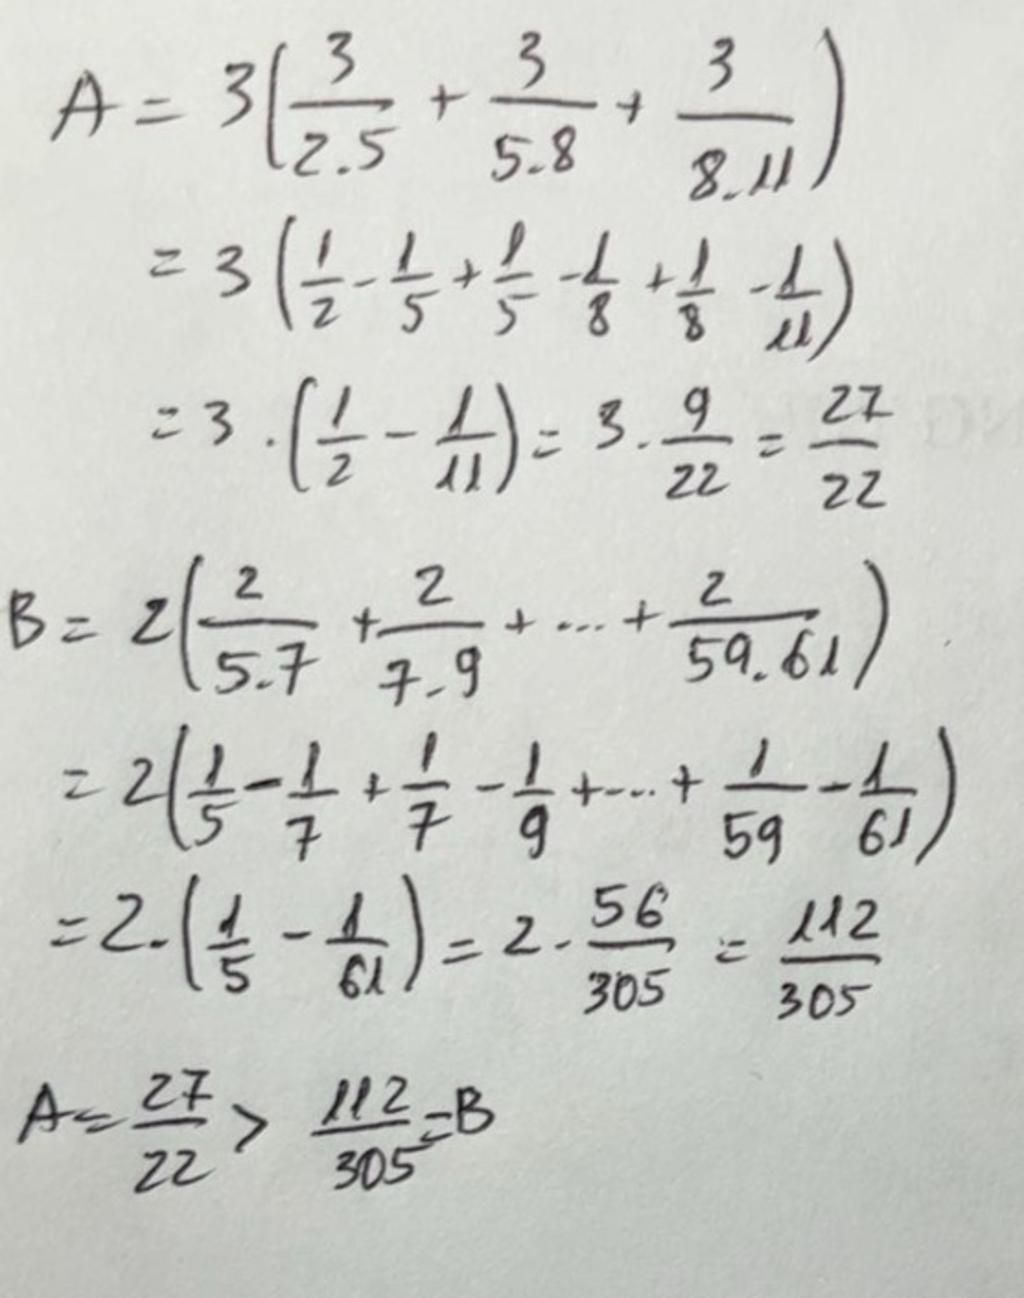 A = 3(3/2.5 + 3/5.8 + 3/8.11)
= 3(1/2 - 1/5 + 1/5 - 1/8 + 1/8 - 1/11)
= 3.(1/2 - 1/11) = 3.9/22 = 27/22
B = 2(2/5.7 + 2/7.9 + ... + 2/59.61)
= 2(1/5 - 1/7 + 1/7 - 1/9 + ... + 1/59 - 1/61)
= 2.(1/5 - 1/61) = 2.56/305 = 112/305
A = 27/22 > 112/305 = B